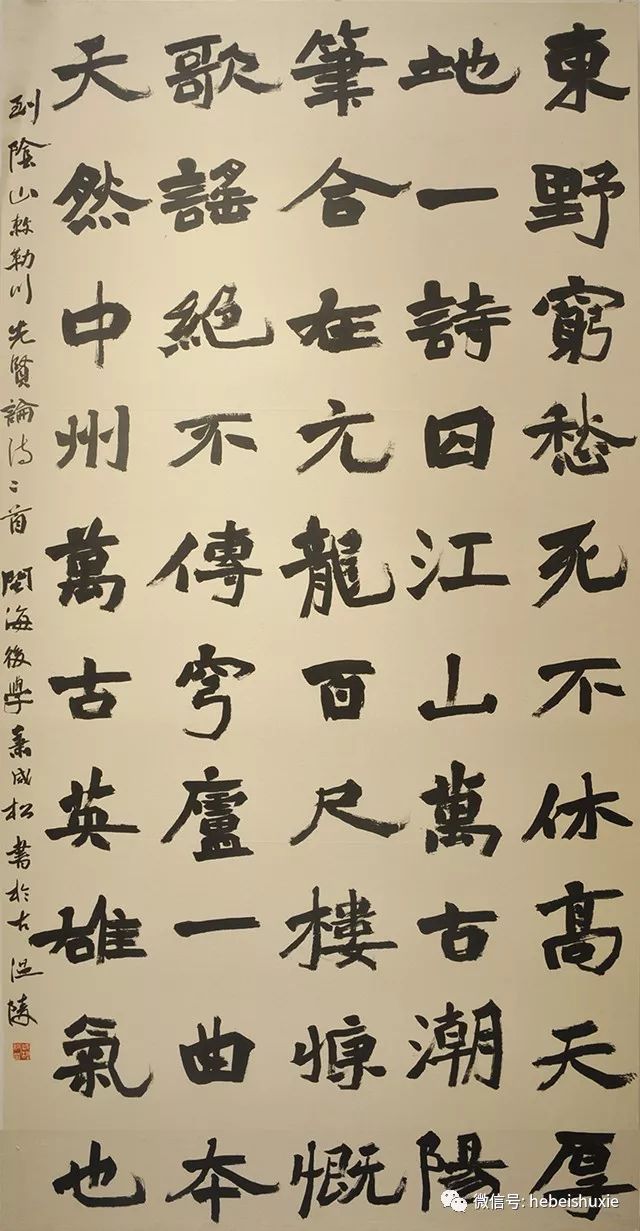 東野窮愁死不休高天厚
地一詩囚江山萬古潮陽
筆合在元龍百尺樓慷慨
歌謠絕不傳穹廬一曲本
天然中州萬古英雄氣也
到陰山敕勒川先賢論詩二首閩海後學蕭成松書於古溫陵
微信号: hebeishuxie